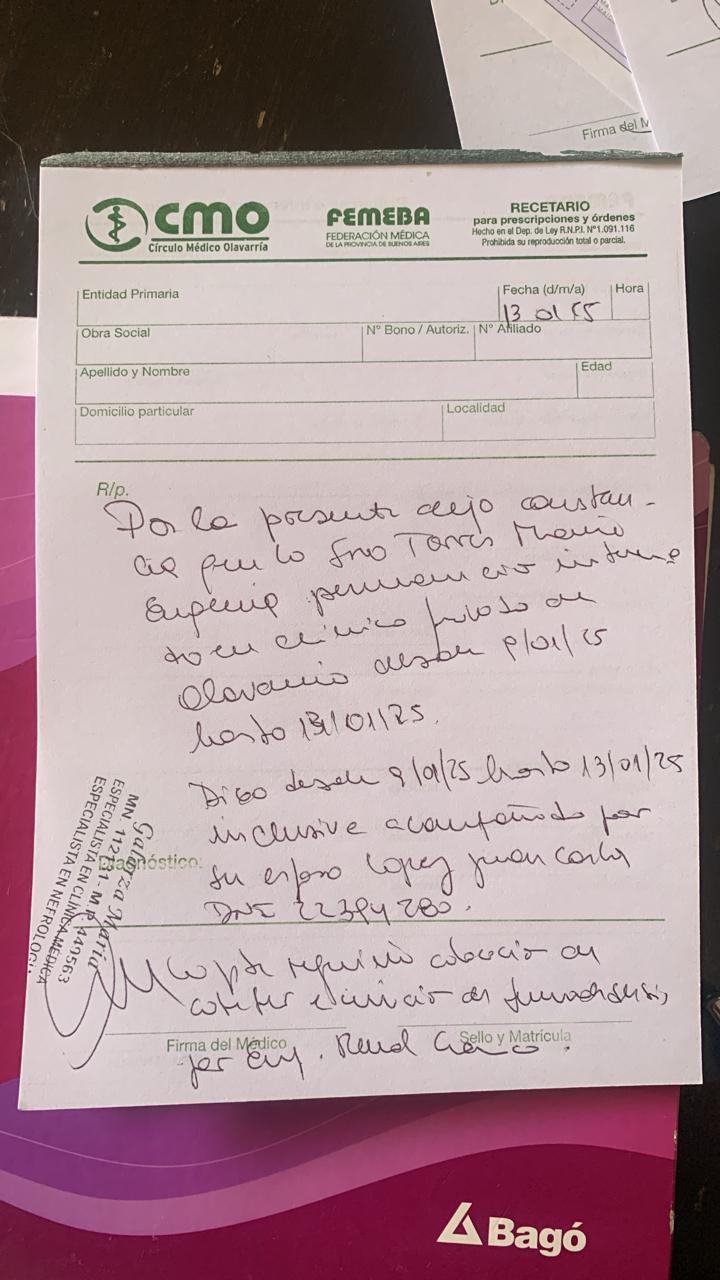 Firma del M
CMO
Círculo Médico Olavarría
FEMEBA
FEDERACIÓN MÉDICA
DE LA PROVINCIA DE BUENOS AIRES
RECETARIO
para prescripciones y órdenes
Hecho en el Dep. de Ley R.N.P.I. Nº1.091.116
Prohibida su reproducción total o parcial.
Entidad Primaria
Fecha (d/m/a)
Hora
13 01
Obra Social
Nº Bono / Autoriz.
Nº Afiliado
Apellido y Nombre
Edad
Domicilio particular
Localidad
R/p.
Por la presente dejo constan-
cia que la Sra Torres Maria
Eugenia permanecio interna
da en clinica privada de
Olavarria desde 9/01/25
hasta 13/01/25.
Digo desde 9/01/25 hasta 13/01/25
inclusive acompañada por
su esposo Lopez Juan Carlos
22394280.
Diagnóstico:
María
MN. 112 - M.P. 449563
ESPECIALISTA EN CLÍNICA MÉDICA
ESPECIALISTA EN NEFROLOGÍ
La pte requirio colocacion de
cateter e inicio de hemodialisis,
Firma del Médico
Sello y Matrícula
por Enf. Renal
Bagó